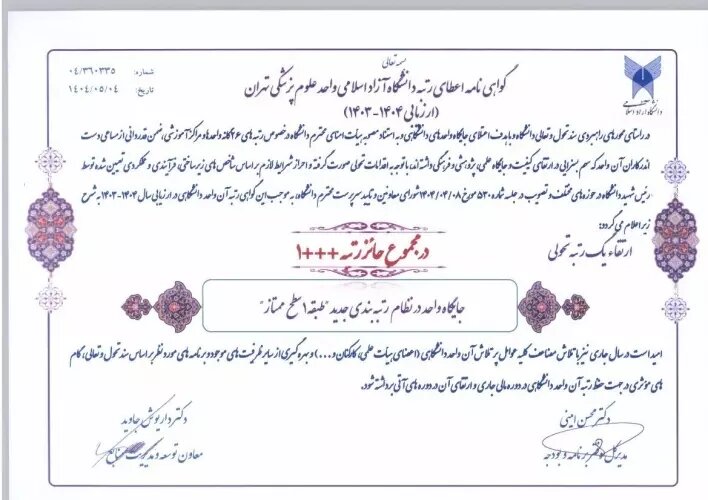 بسمه تعالی
گواهی نامه اعطای رتبه دانشگاه آزاد اسلامی واحد علوم پزشکی تهران
(ارزیابی ۱۴۰۴-۱۴۰۳)
شماره: ۰۴/۳۶۰۳۳۵
تاریخ: ۱۴۰۴/۰۵/۰۴
دانشگاه آزاد اسلامی
در راستای محورهای راهبردی سند تحول و تعالی دانشگاه و با هدف اعتلای جایگاه واحدهای دانشگاهی و به استناد مصوبه هیات امنای محترم دانشگاه در خصوص رتبه های ۲۶ گانه واحدها و مراکز آموزشی، ضمن قدردانی از مساعی دست
اندرکاران آن واحد که سهم بسزایی در ارتقای کیفیت و جایگاه علمی، پژوهشی و فرهنگی داشته اند، با توجه به اقدامات تحولی صورت گرفته و احراز شرایط لازم بر اساس شاخص های زیرساختی، فرآیندی و عملکردی تعیین شده توسط
رئیس شهید دانشگاه در حوزه های مختلف و تصویب در جلسه شماره ۵۳۰ مورخ ۱۴۰۴/۰۴/۰۸ شورای معاونین و تایید سرپرست محترم دانشگاه، به موجب این گواهی رتبه آن واحد دانشگاهی در ارزیابی سال ۱۴۰۴-۱۴۰۳ به شرح
زیر اعلام می گردد:
ارتقاء یک رتبه تحولی
در مجموع حائز رتبه +++۱
جایگاه واحد در نظام رتبه بندی جدید "طبقه ۱ سطح ممتاز"
امید است در سال جاری نیز با تلاش مضاعف کلیه عوامل پر تلاش آن واحد دانشگاهی (اعضای هیات علمی، کارکنان و...) و بهره گیری از سایر ظرفیت های موجود و برنامه های مورد نظر بر اساس سند تحول و تعالی، گام
های موثری در جهت حفظ رتبه آن واحد دانشگاهی در دوره مالی جاری و ارتقای آن در دوره های آتی برداشته شود.
دکتر محسن امینی
مدیر کل دفتر برنامه و بودجه
دکتر داریوش جاوید
معاون توسعه و مدیریت منابع